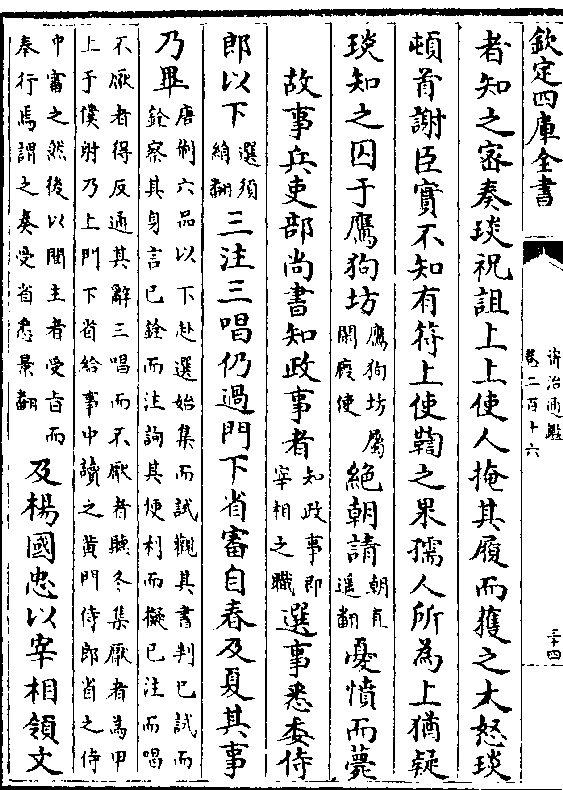 欽定四庫全書
資治通鑑
卷二百十六
三十四
者知之密奏琰祝詛上上使人掩其履而獲之大怒琰
頓首謝臣實不知有符上使鞫之果孺人所為上猶疑
琰知之囚于鷹狗坊鷹狗坊屬閑廐使絶朝請朝直遥翻憂憤而薨
故事兵吏部尚書知政事者知政事即宰相之職選事悉委侍
郎以下選須絹翻三注三唱仍過門下省審自春及夏其事
乃畢唐制六品以下赴選始集而試觀其書判已試而銓察其身言已銓而注詢其便利而擬已注而唱
不厭者得反通其辭三唱而不厭者聽冬集厭者為甲上于僕射乃上門下省給事中讀之黄門侍郎省之侍
中審之然後以聞主者受旨而奉行焉謂之奏受省悉景翻及楊國忠以宰相領文